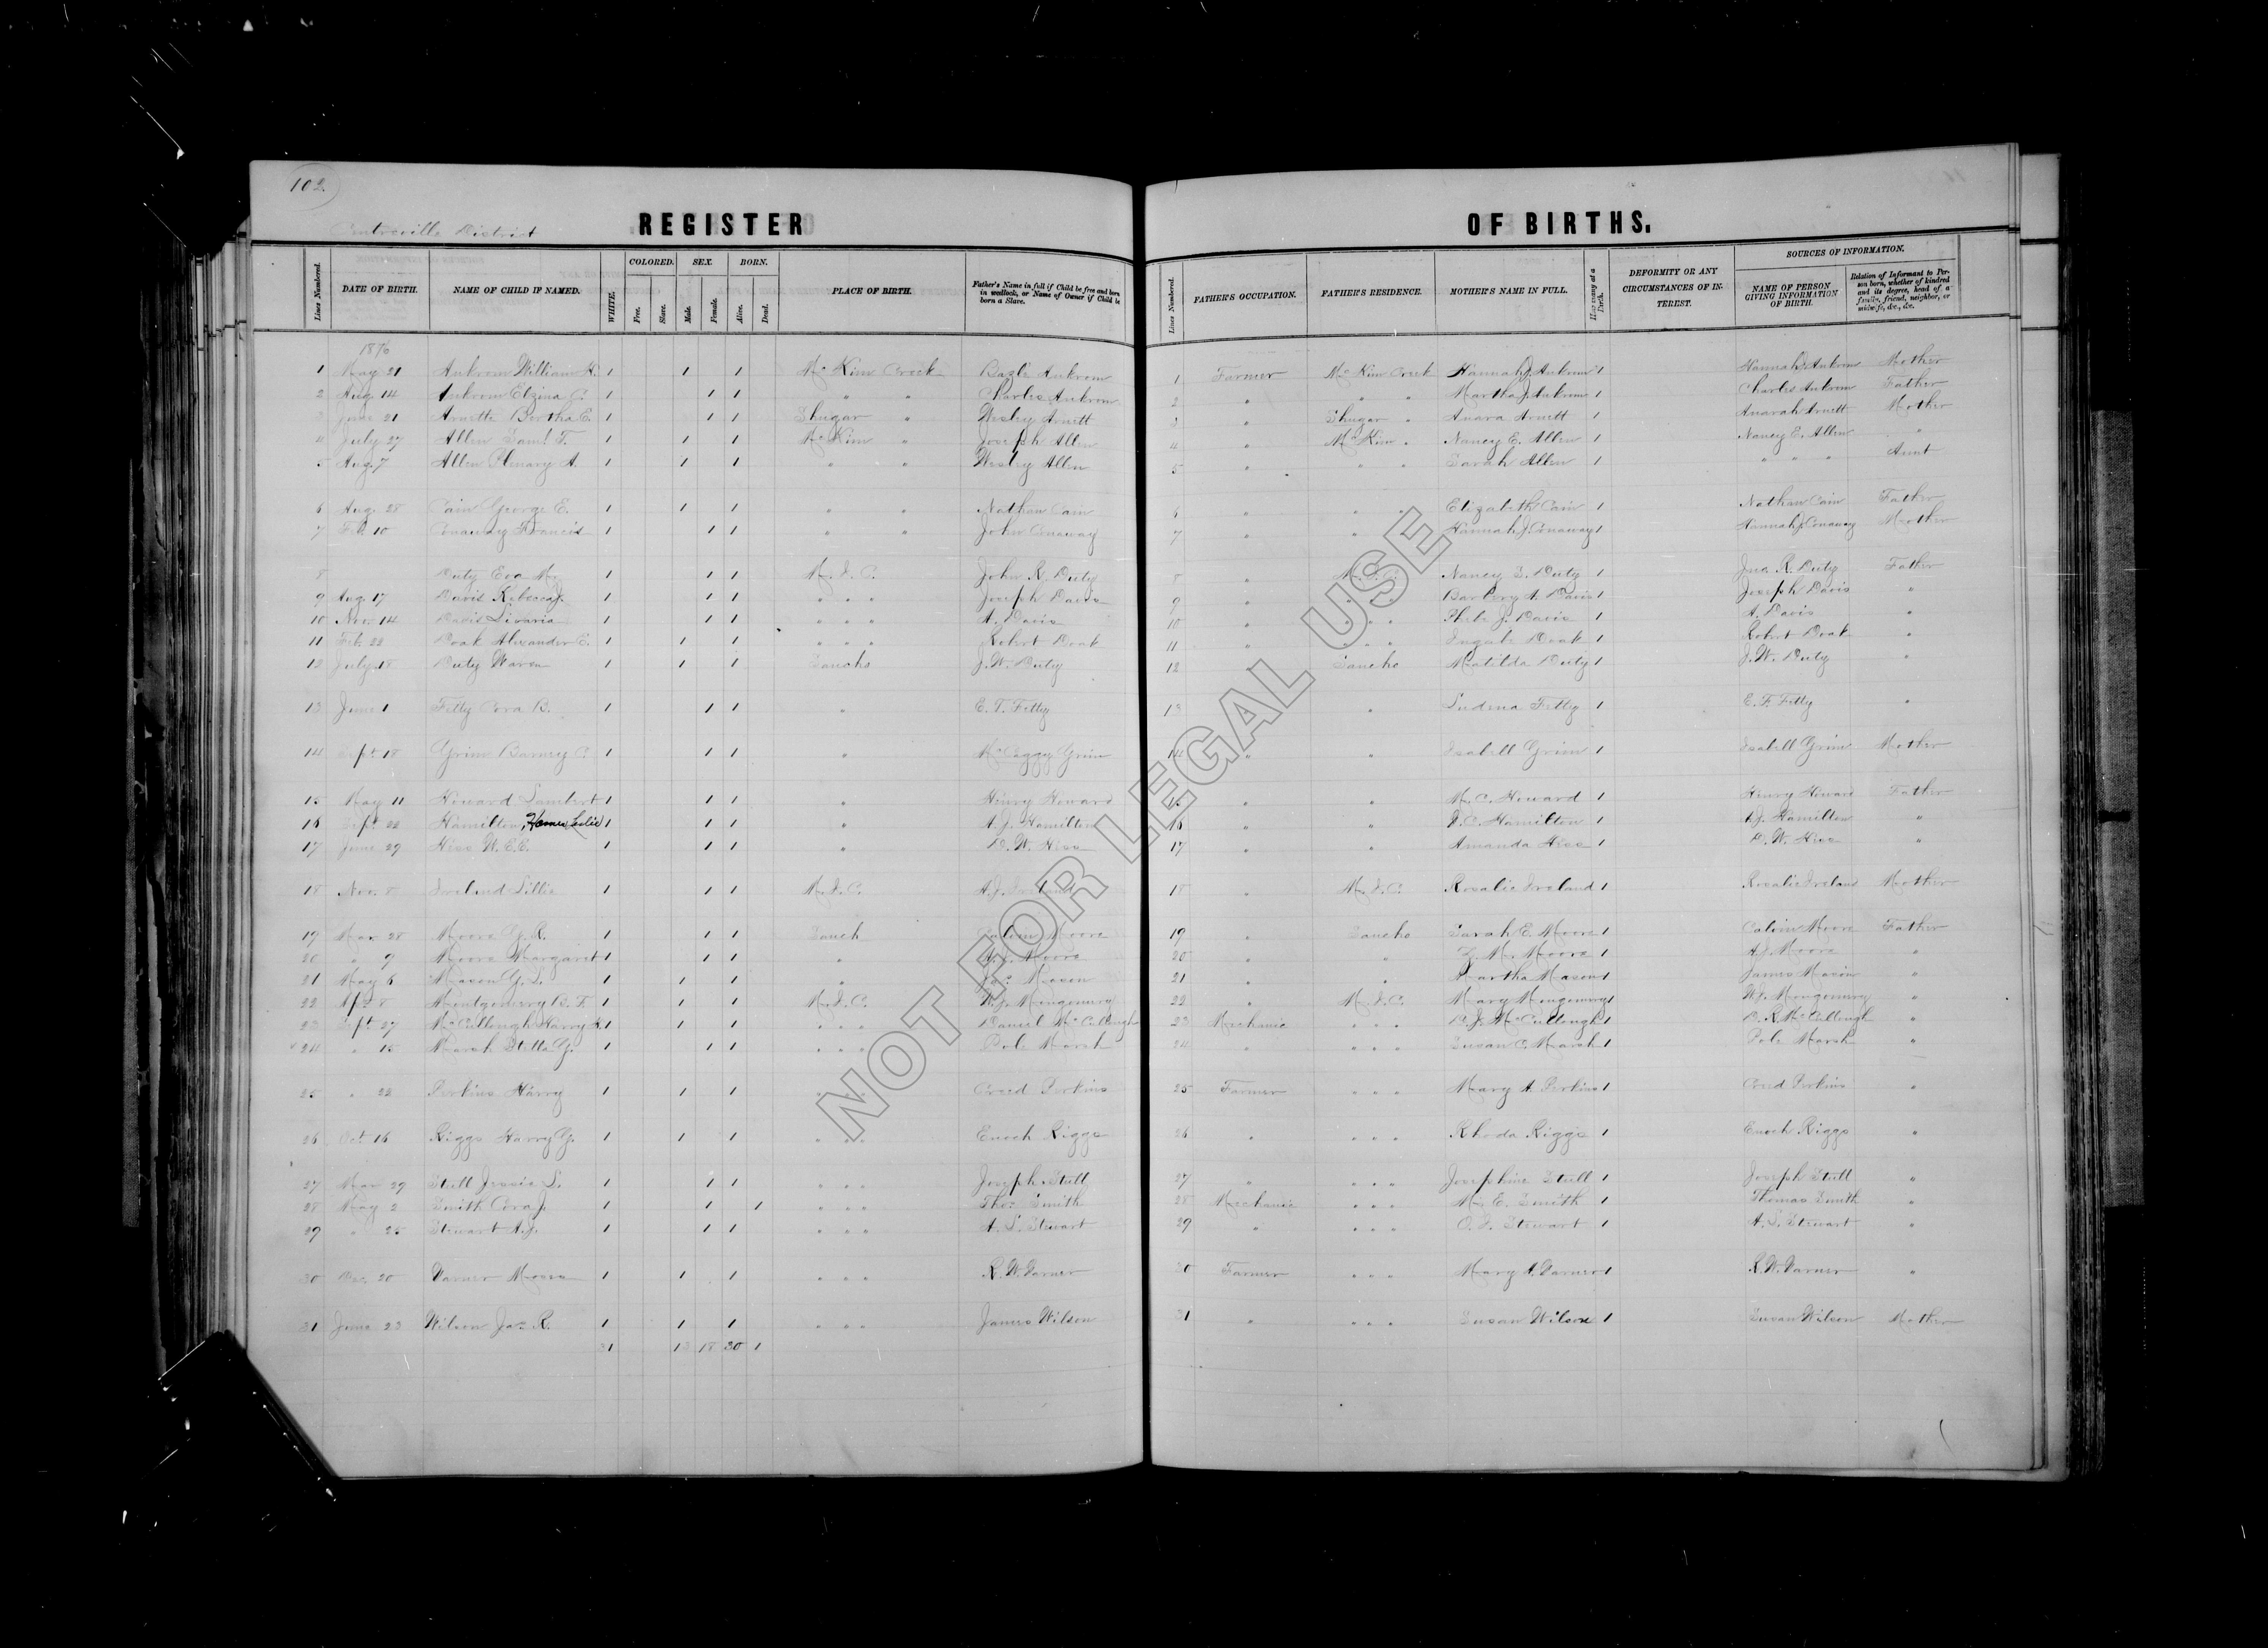 102.
Centreville District
REGISTER OF BIRTHS.
Lines Numbered. DATE OF BIRTH. NAME OF CHILD IF NAMED. WHITE. COLORED. Free. Slave. SEX. Male. Female. BORN. Alive. Dead. PLACE OF BIRTH. Father's Name in full if Child be free and born in wedlock, or Name of Owner if Child be born a Slave. Lines Numbered. FATHER'S OCCUPATION. FATHER'S RESIDENCE. MOTHER'S NAME IN FULL. How many at a Birth. DEFORMITY OR ANY CIRCUMSTANCES OF INTEREST. SOURCES OF INFORMATION. NAME OF PERSON GIVING INFORMATION OF BIRTH. Relation of Informant to Person born, whether of kindred and its degree, head of a family, friend, neighbor, or midwife, &c., &c.
1876
1 May 21 Ankrom William H. 1 1 1 McKim Creek Bazle Ankrom 1 Farmer McKim Creek Hannah J. Ankrom 1 Hannah J. Ankrom Mother
2 Aug. 14 Ankrom Elzina C. 1 1 1 " " Charles Ankrom 2 " " " Martha J. Ankrom 1 Charles Ankrom Father
3 June 21 Arnett Bertha E. 1 1 1 Shugar " Wesley Arnett 3 " Shugar " Anara Arnett 1 Anarah Arnett Mother
4 July 27 Allen Saml. F. 1 1 1 McKim " Joseph Allen 4 " McKim " Nancy E. Allen 1 Nancy E. Allen "
5 Aug. 7 Allen Plenary A. 1 1 1 " " Wesley Allen 5 " " " Sarah Allen 1 " " " Aunt
6 Aug. 28 Cain George E. 1 1 1 " " Nathan Cain 6 " " " Elizabeth Cain 1 Nathan Cain Father
7 Feb. 10 Conaway Francis 1 1 1 " " John Conaway 7 " " Hannah J. Conaway 1 Hannah J. Conaway Mother
8 Duty Eva M. 1 1 1 M. I. C. John R. Duty 8 " M. I. C. Nancy S. Duty 1 Jno. R. Duty Father
9 Aug. 17 Davis Rebecca J. 1 1 1 " " " Joseph Davis 9 " Barbery A. Davis 1 Joseph Davis "
10 Nov. 14 Davis 1 1 1 " " " A. Davis 10 " Phebe J. Davis 1 A. Davis "
11 Feb. 22 Doak Alexander C. 1 1 1 " " " Robert Doak 11 " Doak 1 Robert Doak "
12 July 18 Duty Waren 1 1 1 Sancho J. W. Duty 12 Sancho Matilda Duty 1 J. W. Duty "
13 June 1 Fetty Cora B. 1 1 1 " E. T. Fetty 13 " Ludena Fetty 1 E. F. Fetty "
14 Sept. 18 Grim Barney C. 1 1 1 " Grim 14 " " Isabell Grim 1 Isabell Grim Mother
15 May 11 Howard Lambert 1 1 1 " Henry Howard 15 " " M. C. Howard 1 Henry Howard Father
16 Sept. 22 Hamilton, Homer Leslie 1 1 1 " A. J. Hamilton 16 " " J. C. Hamilton 1 A. J. Hamilton "
17 June 29 Hiss W. E. E. 1 1 1 " D. W. Hiss 17 " " Amanda Hiss 1 D. W. Hiss "
18 Nov. 8 Ireland Lillie 1 1 1 M. I. C. A. J. Ireland 18 " M. I. C. Rosalie Ireland 1 Rosalie Ireland Mother
19 Mar. 28 Moore G. R. 1 1 1 Sanch Calvin Moore 19 " Sancho Sarah E. Moore 1 Calvin Moore Father
20 " 9 Moore Margaret 1 1 1 " A. J. Moore 20 " " Z. M. Moore 1 A. J. Moore "
21 May 6 Mason G. L. 1 1 1 " Jas. Mason 21 " " Martha Mason 1 James Mason "
22 Apr. 8 Montgomery B. F. 1 1 1 M. I. C. W. J. Montgomery 22 " M. I. C. Mary Montgomery 1 W. J. Montgomery "
23 Sept. 27 McCullough Harry K. 1 1 1 " " " Daniel McCullough 23 Mechanic " " " D. J. McCullough 1 D. R. McCullough "
24 " 15 Marsh Stella G. 1 1 1 " " " Pole Marsh 24 " " " " Susan C. Marsh 1 Pole Marsh "
25 " 22 Perkins Harry 1 1 1 " " " Creed Perkins 25 Farmer " " " Mary A. Perkins 1 Creed Perkins "
26 Oct. 16 Riggs Harry G. 1 1 1 " " " Enoch Riggs 26 " " " " Rhoda Riggs 1 Enoch Riggs "
27 Mar. 29 Stull Jessie L. 1 1 1 " " " Joseph Stull 27 " " " " Josephine Stull 1 Joseph Stull "
28 May 2 Smith Cora J. 1 1 1 " " " Thos. Smith 28 Mechanic " " " M. E. Smith 1 Thomas Smith "
29 " 25 Stewart A. J. 1 1 1 " " " A. S. Stewart 29 " " " " O. I. Stewart 1 A. S. Stewart "
30 Dec. 20 Varner Moore 1 1 1 " " " R. W. Varner 30 Farmer " " " Mary A. Varner 1 R. W. Varner "
31 June 23 Wilson Jas. R. 1 1 1 " " " James Wilson 31 " " " " Susan Wilson 1 Susan Wilson Mother
31 13 18 30 1
NOT FOR LEGAL USE